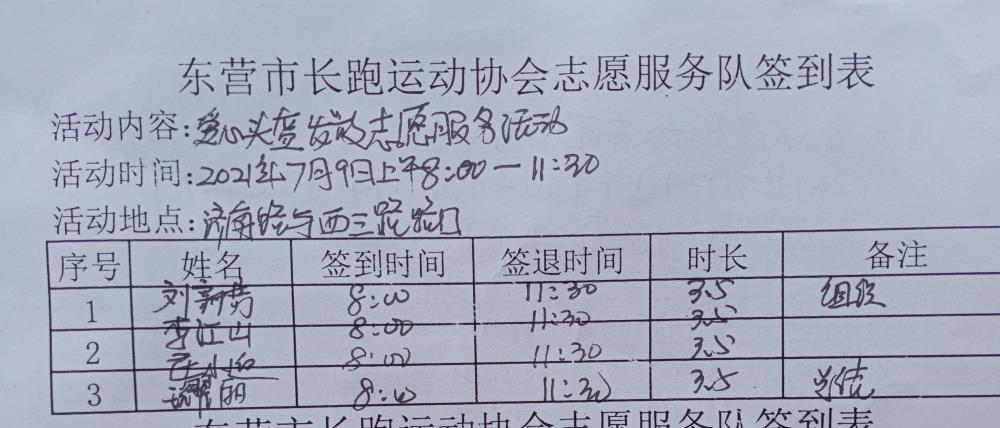 东营市长跑运动协会志愿服务队签到表
活动内容:爱心头盔发放志愿服务活动
活动时间:2021年7月9日上午8:00一11:30
活动地点:济南路与西三路路口
序号 姓名 签到时间 签退时间 时长 备注
1 刘新 8:00 11:30 3.5 组织
李江山 8:00 11:30 3.5
2 小 8:00 11:30 3.5
3 丽 8:00 11:30 3.5 总结
东营市长跑运动协会志愿服务队签到表